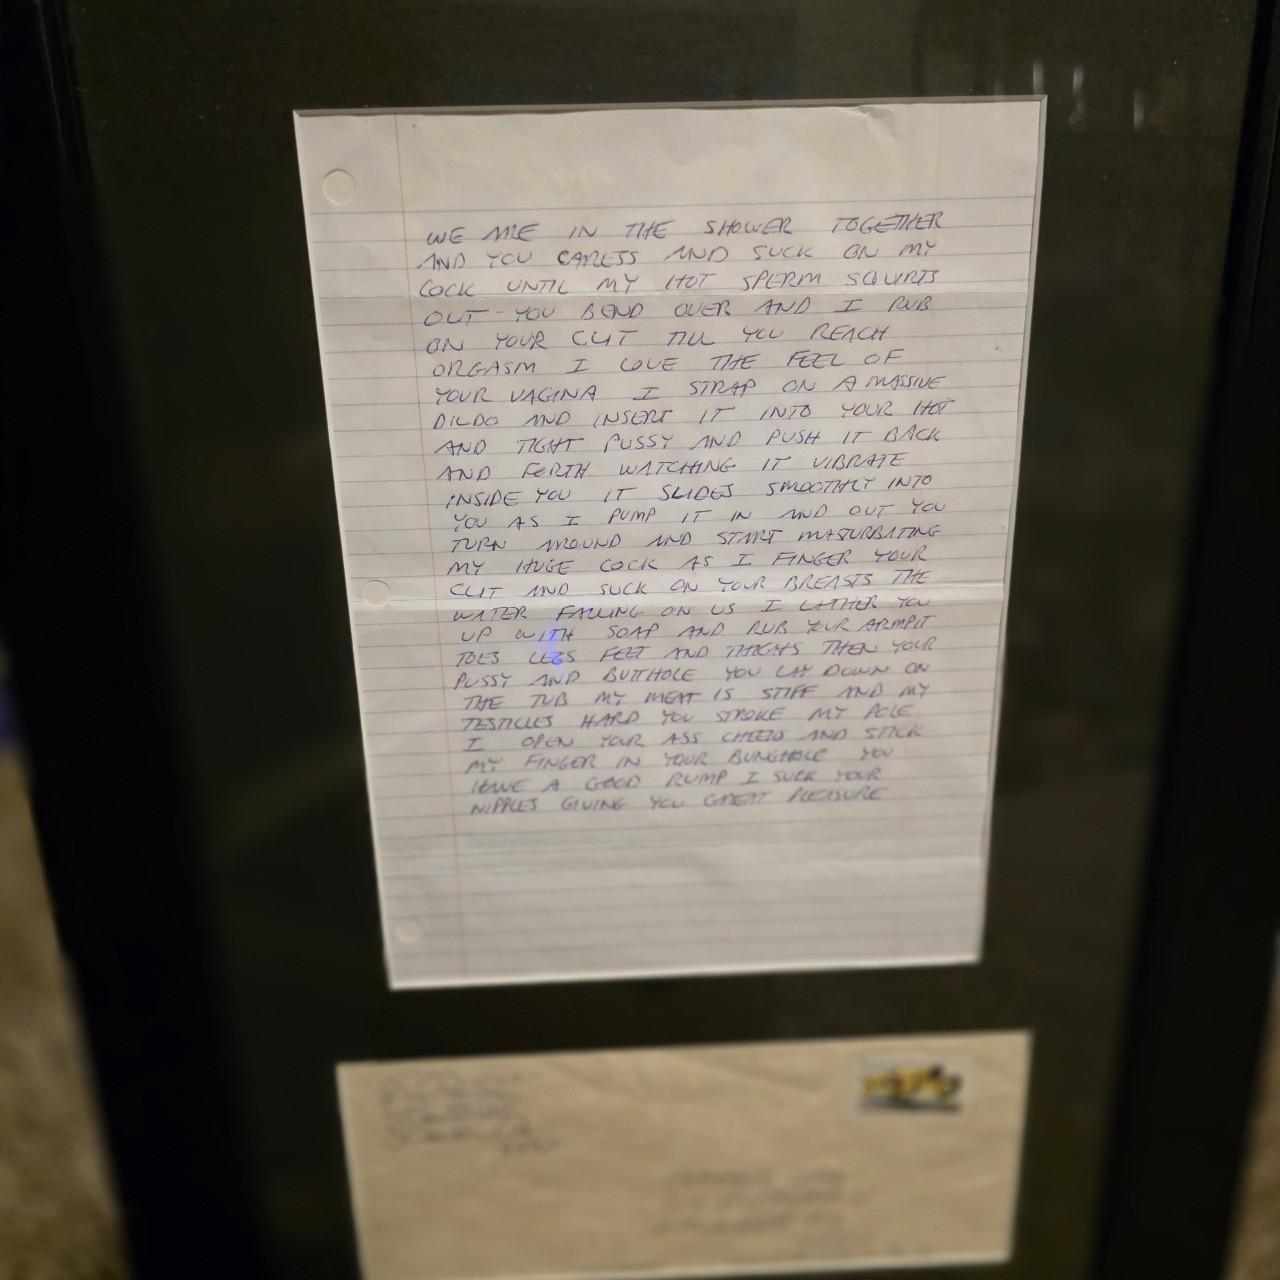 WE ARE IN THE SHOWER TOGETHER
AND YOU CARESS AND SUCK ON MY
COCK UNTIL MY HOT SPERM SQUIRTS
OUT - YOU BEND OVER AND I RUB
ON YOUR CLIT TILL YOU REACH
ORGASM I LOVE THE FEEL OF
YOUR VAGINA I STRAP ON A MASSIVE
DILDO AND INSERT IT INTO YOUR HOT
AND TIGHT PUSSY AND PUSH IT BACK
AND FORTH WATCHING IT VIBRATE
INSIDE YOU IT SLIDES SMOOTHLY INTO
YOU AS I PUMP IT IN AND OUT YOU
TURN AROUND AND START MASTURBATING
MY HUGE COCK AS I FINGER YOUR
CLIT AND SUCK ON YOUR BREASTS THE
WATER FALLING ON US I LATHER YOU
UP WITH SOAP AND RUB YOUR ARMPIT
TOES LEGS FEET AND THIGHS THEN YOUR
PUSSY AND BUTTHOLE YOU LAY DOWN ON
THE TUB MY MEAT IS STIFF AND MY
TESTICLES HARD YOU STROKE MY POLE
I OPEN YOUR ASS CHEEKS AND STICK
MY FINGER IN YOUR BUNGHOLE YOU
HAVE A GOOD RUMP I SUCK YOUR
NIPPLES GIVING YOU GREAT PLEASURE